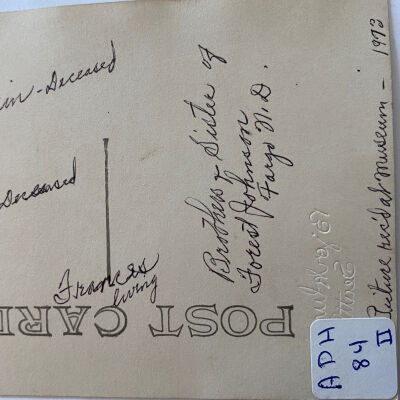 in - Deceased
Deceased
Frances
living
Brothers & Sister of
Forest Johnson
Fargo N.D.
Picture rec'd at Museum - 1973
POST CARD
ADH
84
II